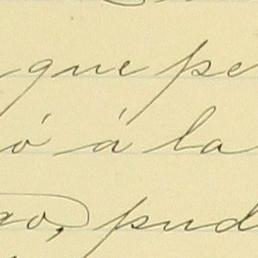 que pe
ó á la
go, pud